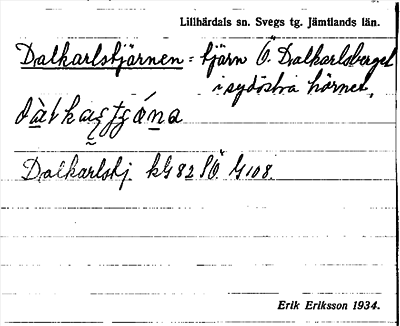 Lillhärdals sn. Svegs tg. Jämtlands län.
Dalkarlstjärnen = tjärn Ö. Dalkarlsberget
i sydöstra hörnet.
Dalkarlstj. kG 82 SÖ G 108.
Erik Eriksson 1934.